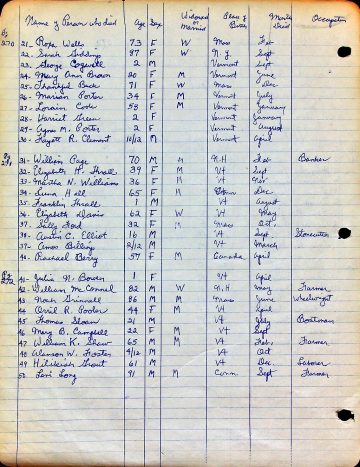 Name of Person who died Age Sex Widowed or Married Place of Birth Month Died Occupation
Pg 270
21. Roxa Wells 73 F W Mass Feb
22. Sarah Giddings 87 F W N.Y. Sept
23. George Cogswell 2 M Vermont Sept
24. Mary Ann Brown 20 F M Vermont June
25. Thankful Buck 71 F W Mass Dec
26. Marian Porter 34 F M Vermont July
27. Lorain Cook 58 F M Vermont January
28. Harriet Green 2 F Vermont January
29. Agnes M. Porter 2 F Vermont August
30. Fayett R. Clement 10/12 M Vermont April
Pg 271
31. William Page 70 M M N.H Feb Banker
32. Elizabeth H. Thrall 39 F M Vt Sept
33. Martha N. Williams 36 F M Vt Nov
34. Luna Hall 65 F M Conn Dec
35. Franklin Thrall 1 M Vt August
36. Elizabeth Davis 62 F W Vt May
37. Sally Ford 32 F M Mass Oct.
38. Austin C. Elliot 16 M Vt Sept Stonecutter
39. Amos Billing 2/12 M Vt March
40. Rachael Berry 57 F M Canada April
Pg 272
41. Julia N. Bowen 1 F Vt April
42. William McConnel 82 M W N.H May Farmer
43. Noah Grinnell 86 M M Mass June Wheelwright
44. Orril R. Pooler 44 F M Vt April
45. Thomas Sloan 21 M Vt July Boatman
46. Mary B. Campbell 22 F M Vt Sept
47. William K. Shaw 65 M M Vt Feb. Farmer
48. Alanson W. Foster 4/12 M Vt Oct
49. Hilikiah Grout 61 M Vt Dec. Laborer
50. Levi Long 91 M M Conn Sept Farmer